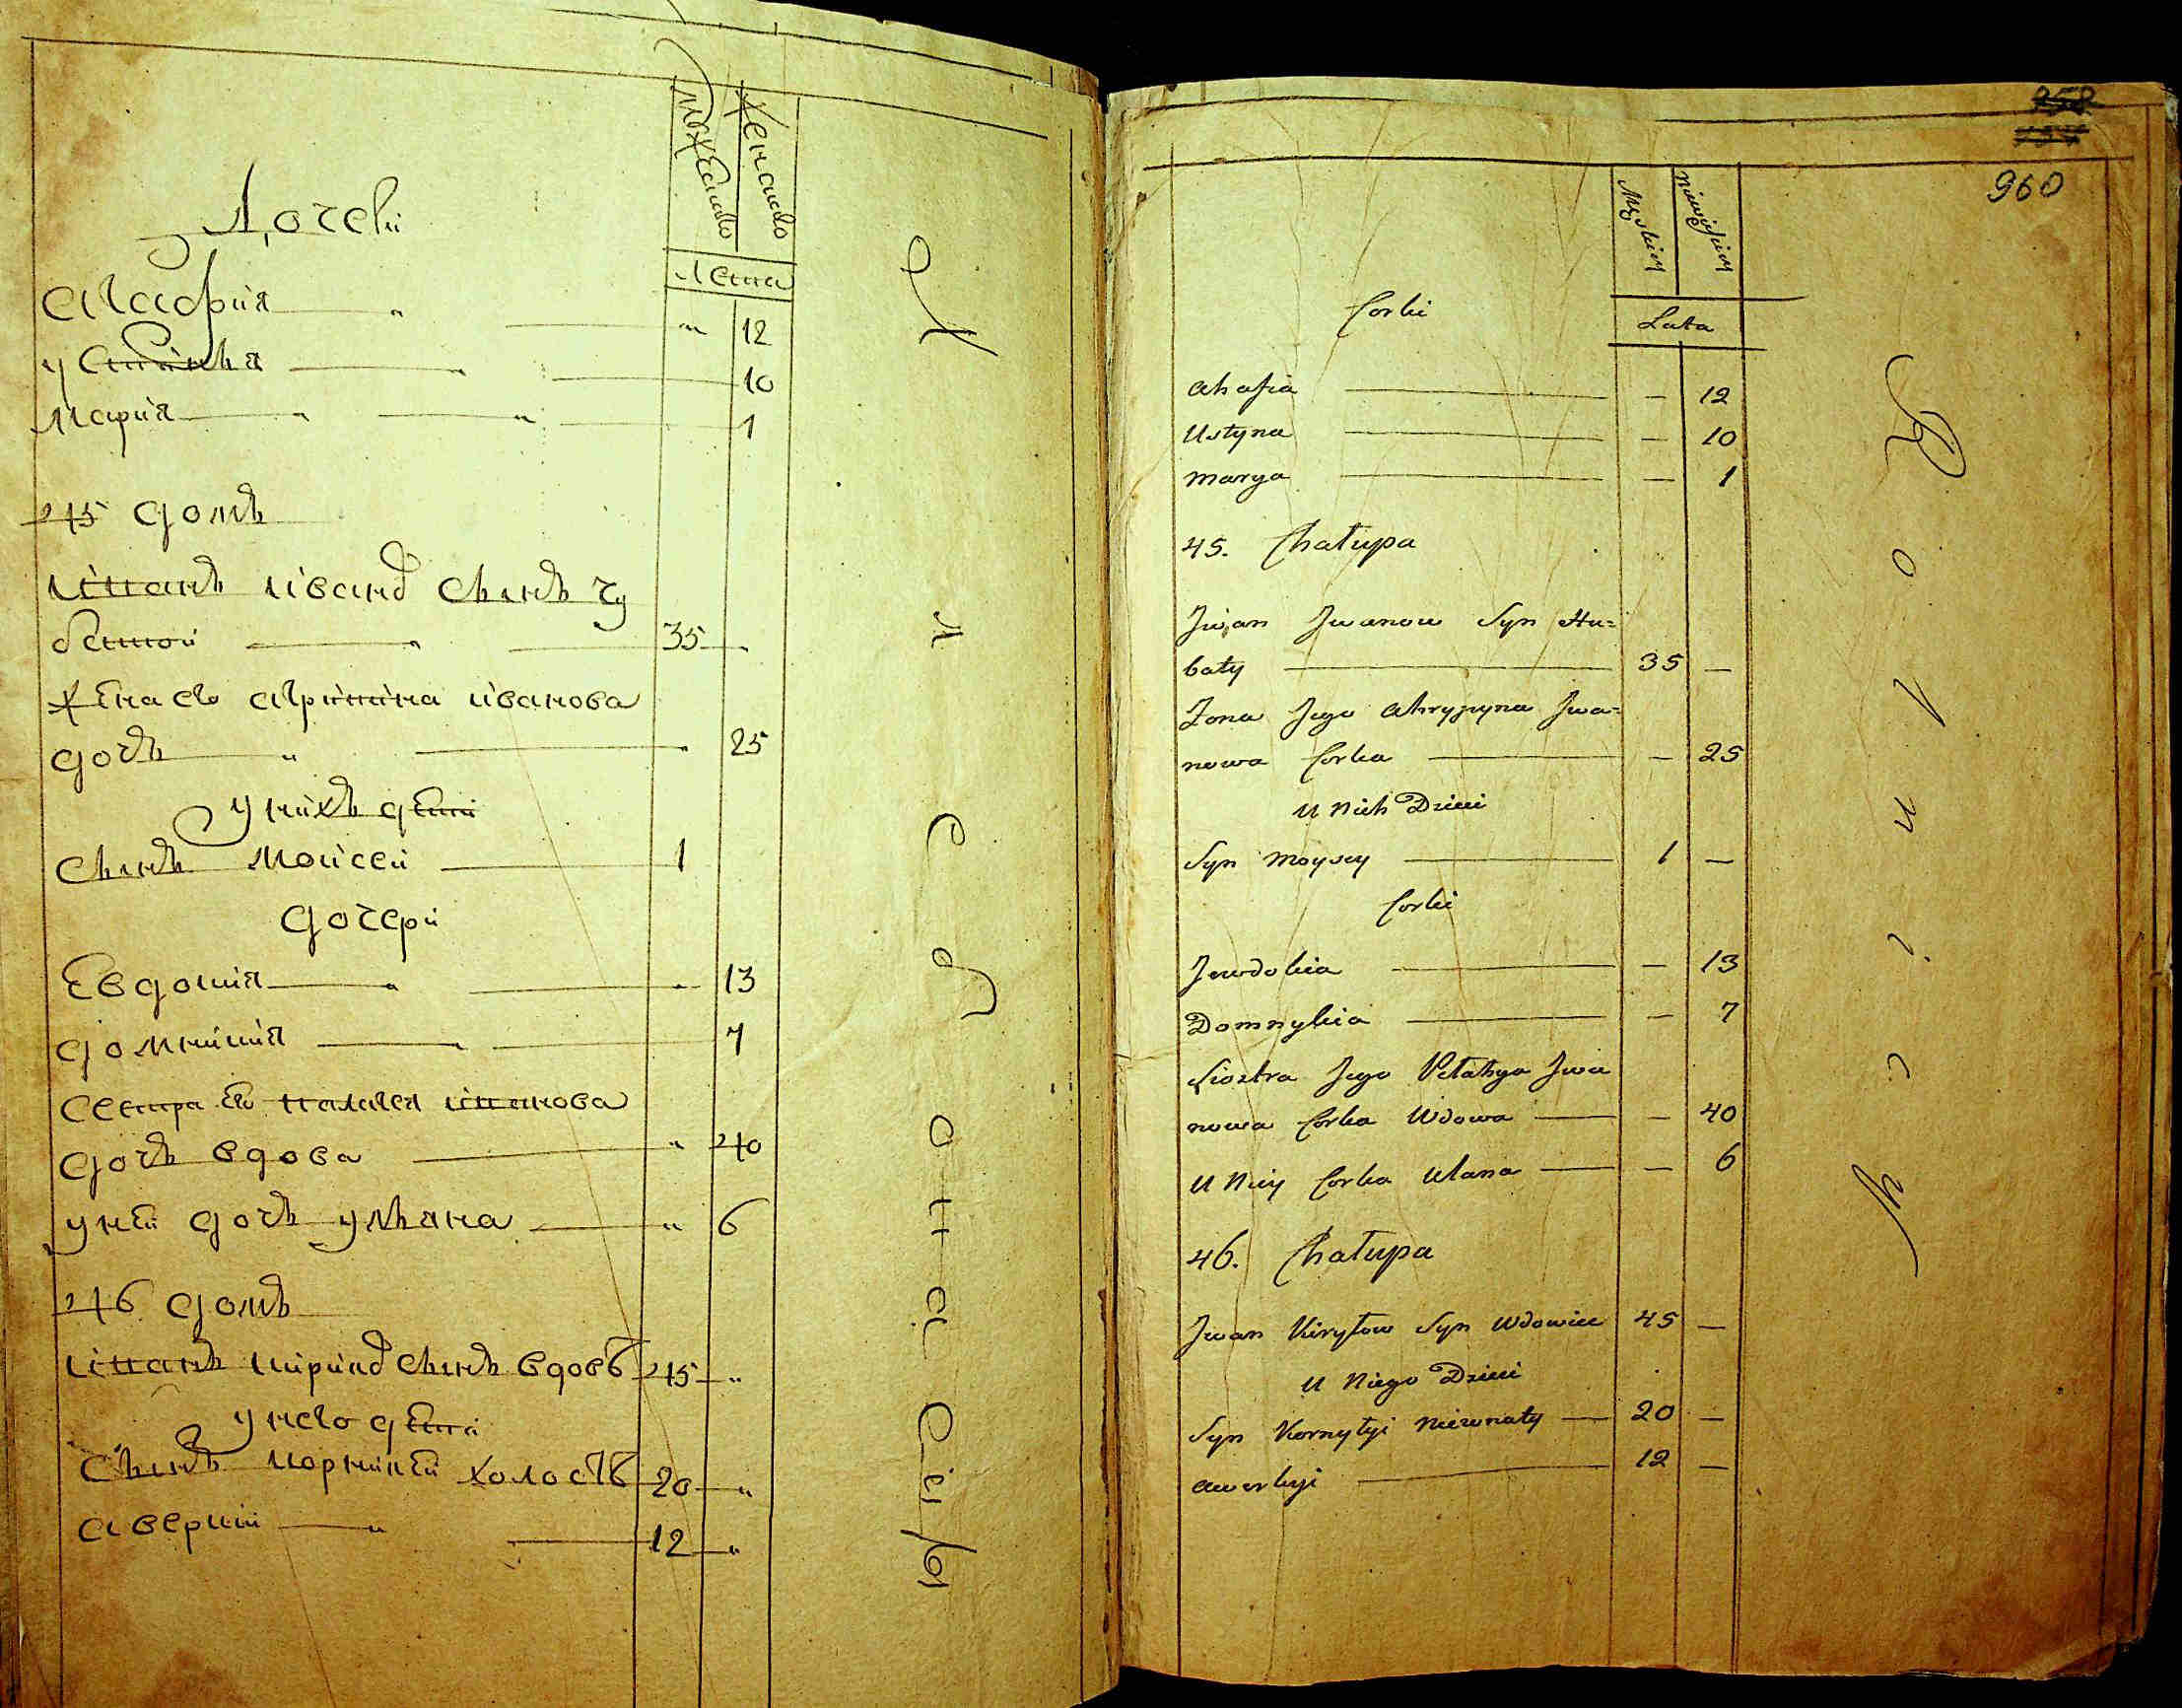 Мужеска
Женска
Лета
Дочки
Агафия " " 12
Устинья " 10
Мария " " 1
45 домъ
Иванъ Ивановъ сынъ Гу
батой " 35 "
Жена его Агрипина Иванова
дочь " " 25
У нихъ дети
Сынъ Моисей 1
дочери
Евдокия " " 13
Домникия " 7
Сестра его Палагея Иванова
дочь вдова " 40
У ней дочь Ульяна " 6
46 домъ
Иванъ Кириловъ сынъ вдовъ 45 "
У него дети
Сынъ Корнилей холостъ 20 "
Аверкий " 12 "
958
960
Męskiey
Niewieściey
Lata
Corki
Ahafia — — 12
Ustyna — — 10
Marya — — 1
45. Chałupa
Jwan Jwanow Syn Hu=
baty — 35 —
Zona Jego Ahrypyna Jwa=
nowa Corka — — 25
U Nich Dzieci
Syn Moysey — 1 —
Corki
Jewdokia — — 13
Domnykia — — 7
Siostra Jego Pełahya Jwa
nowa Corka Wdowa — — 40
U Niey Corka Ulana — — 6
46. Chałupa
Jwan Kiryłow Syn Wdowiec 45 —
U Niego Dzieci
Syn Kornyłyi Nieżonaty — 20 —
Awerkyi — 12 —
R o l n i c y